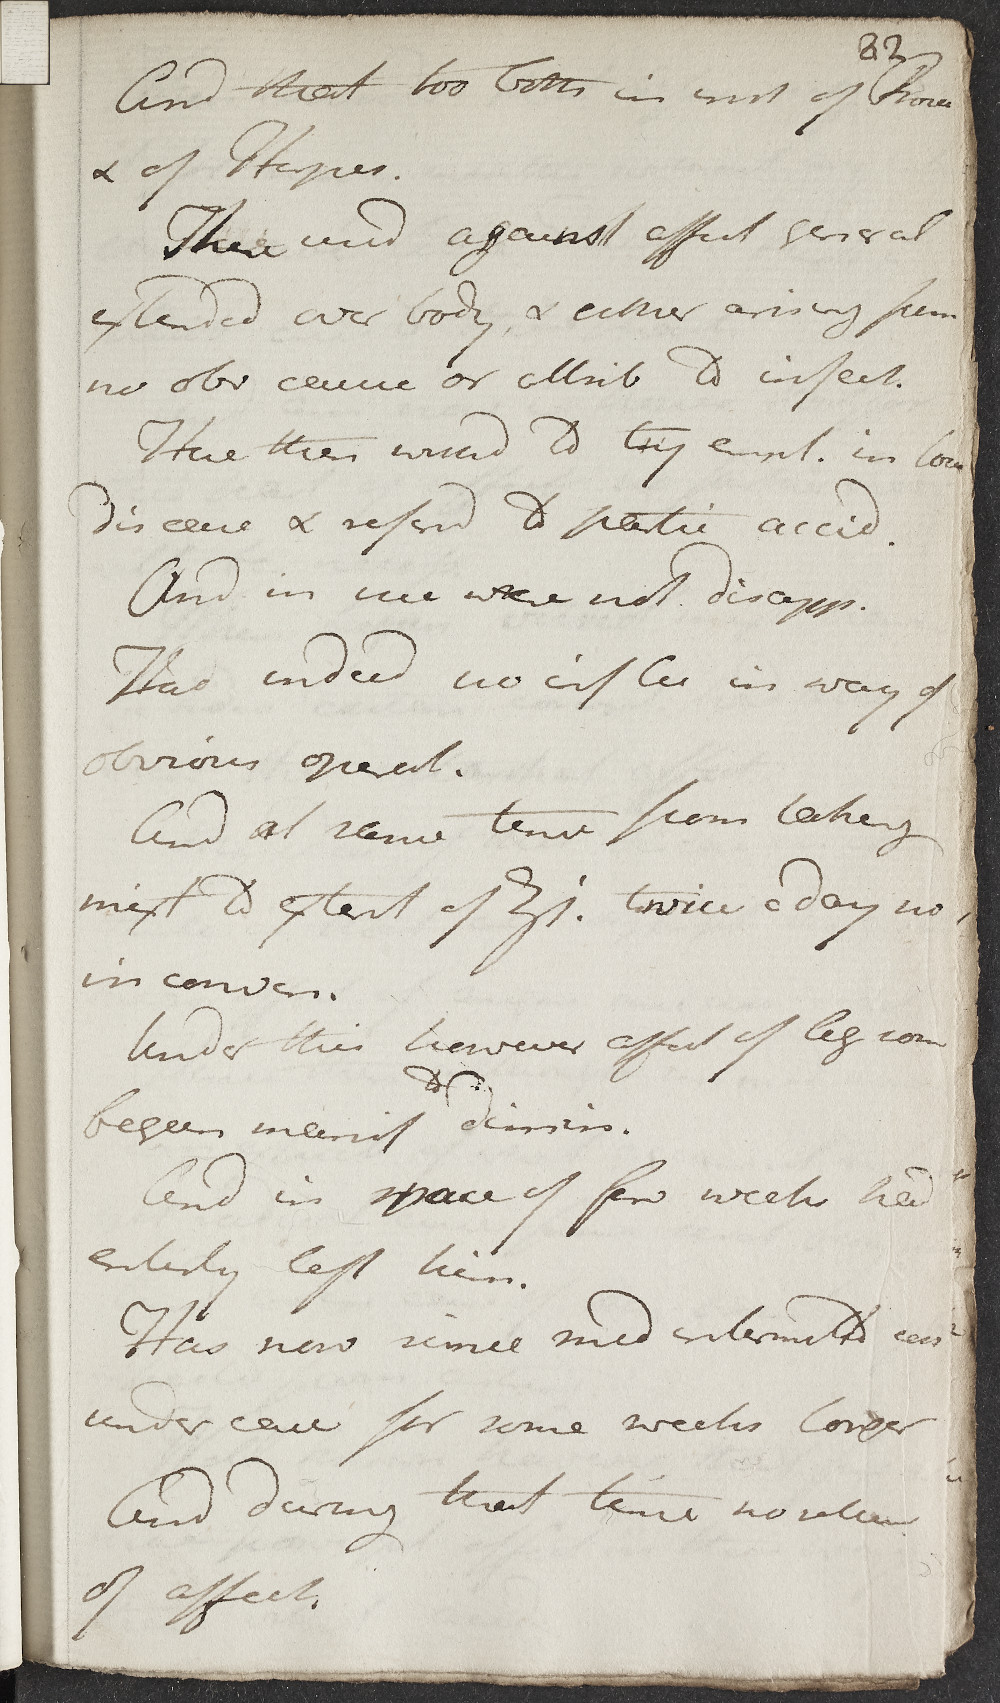 82
And that too both in inst of Psora
& of Herpes.
There used against affect general
extended over body, & either arising from
no obv cause or attrib to infect.
Here then wished to try empl. in loca
disease & referd to partic accid.
And in use were not disapp.
Had indeed no infl in way of
obvious operat.
And at same time from taking
mixt to extent of ℥j. twice a day no
inconven.
Under this however affect of leg soon
began manif to dimin.
And in space of few weeks had
entirely left him.
Has now since med intermitted
under care for some weeks longer
And during that time no return
of affect.